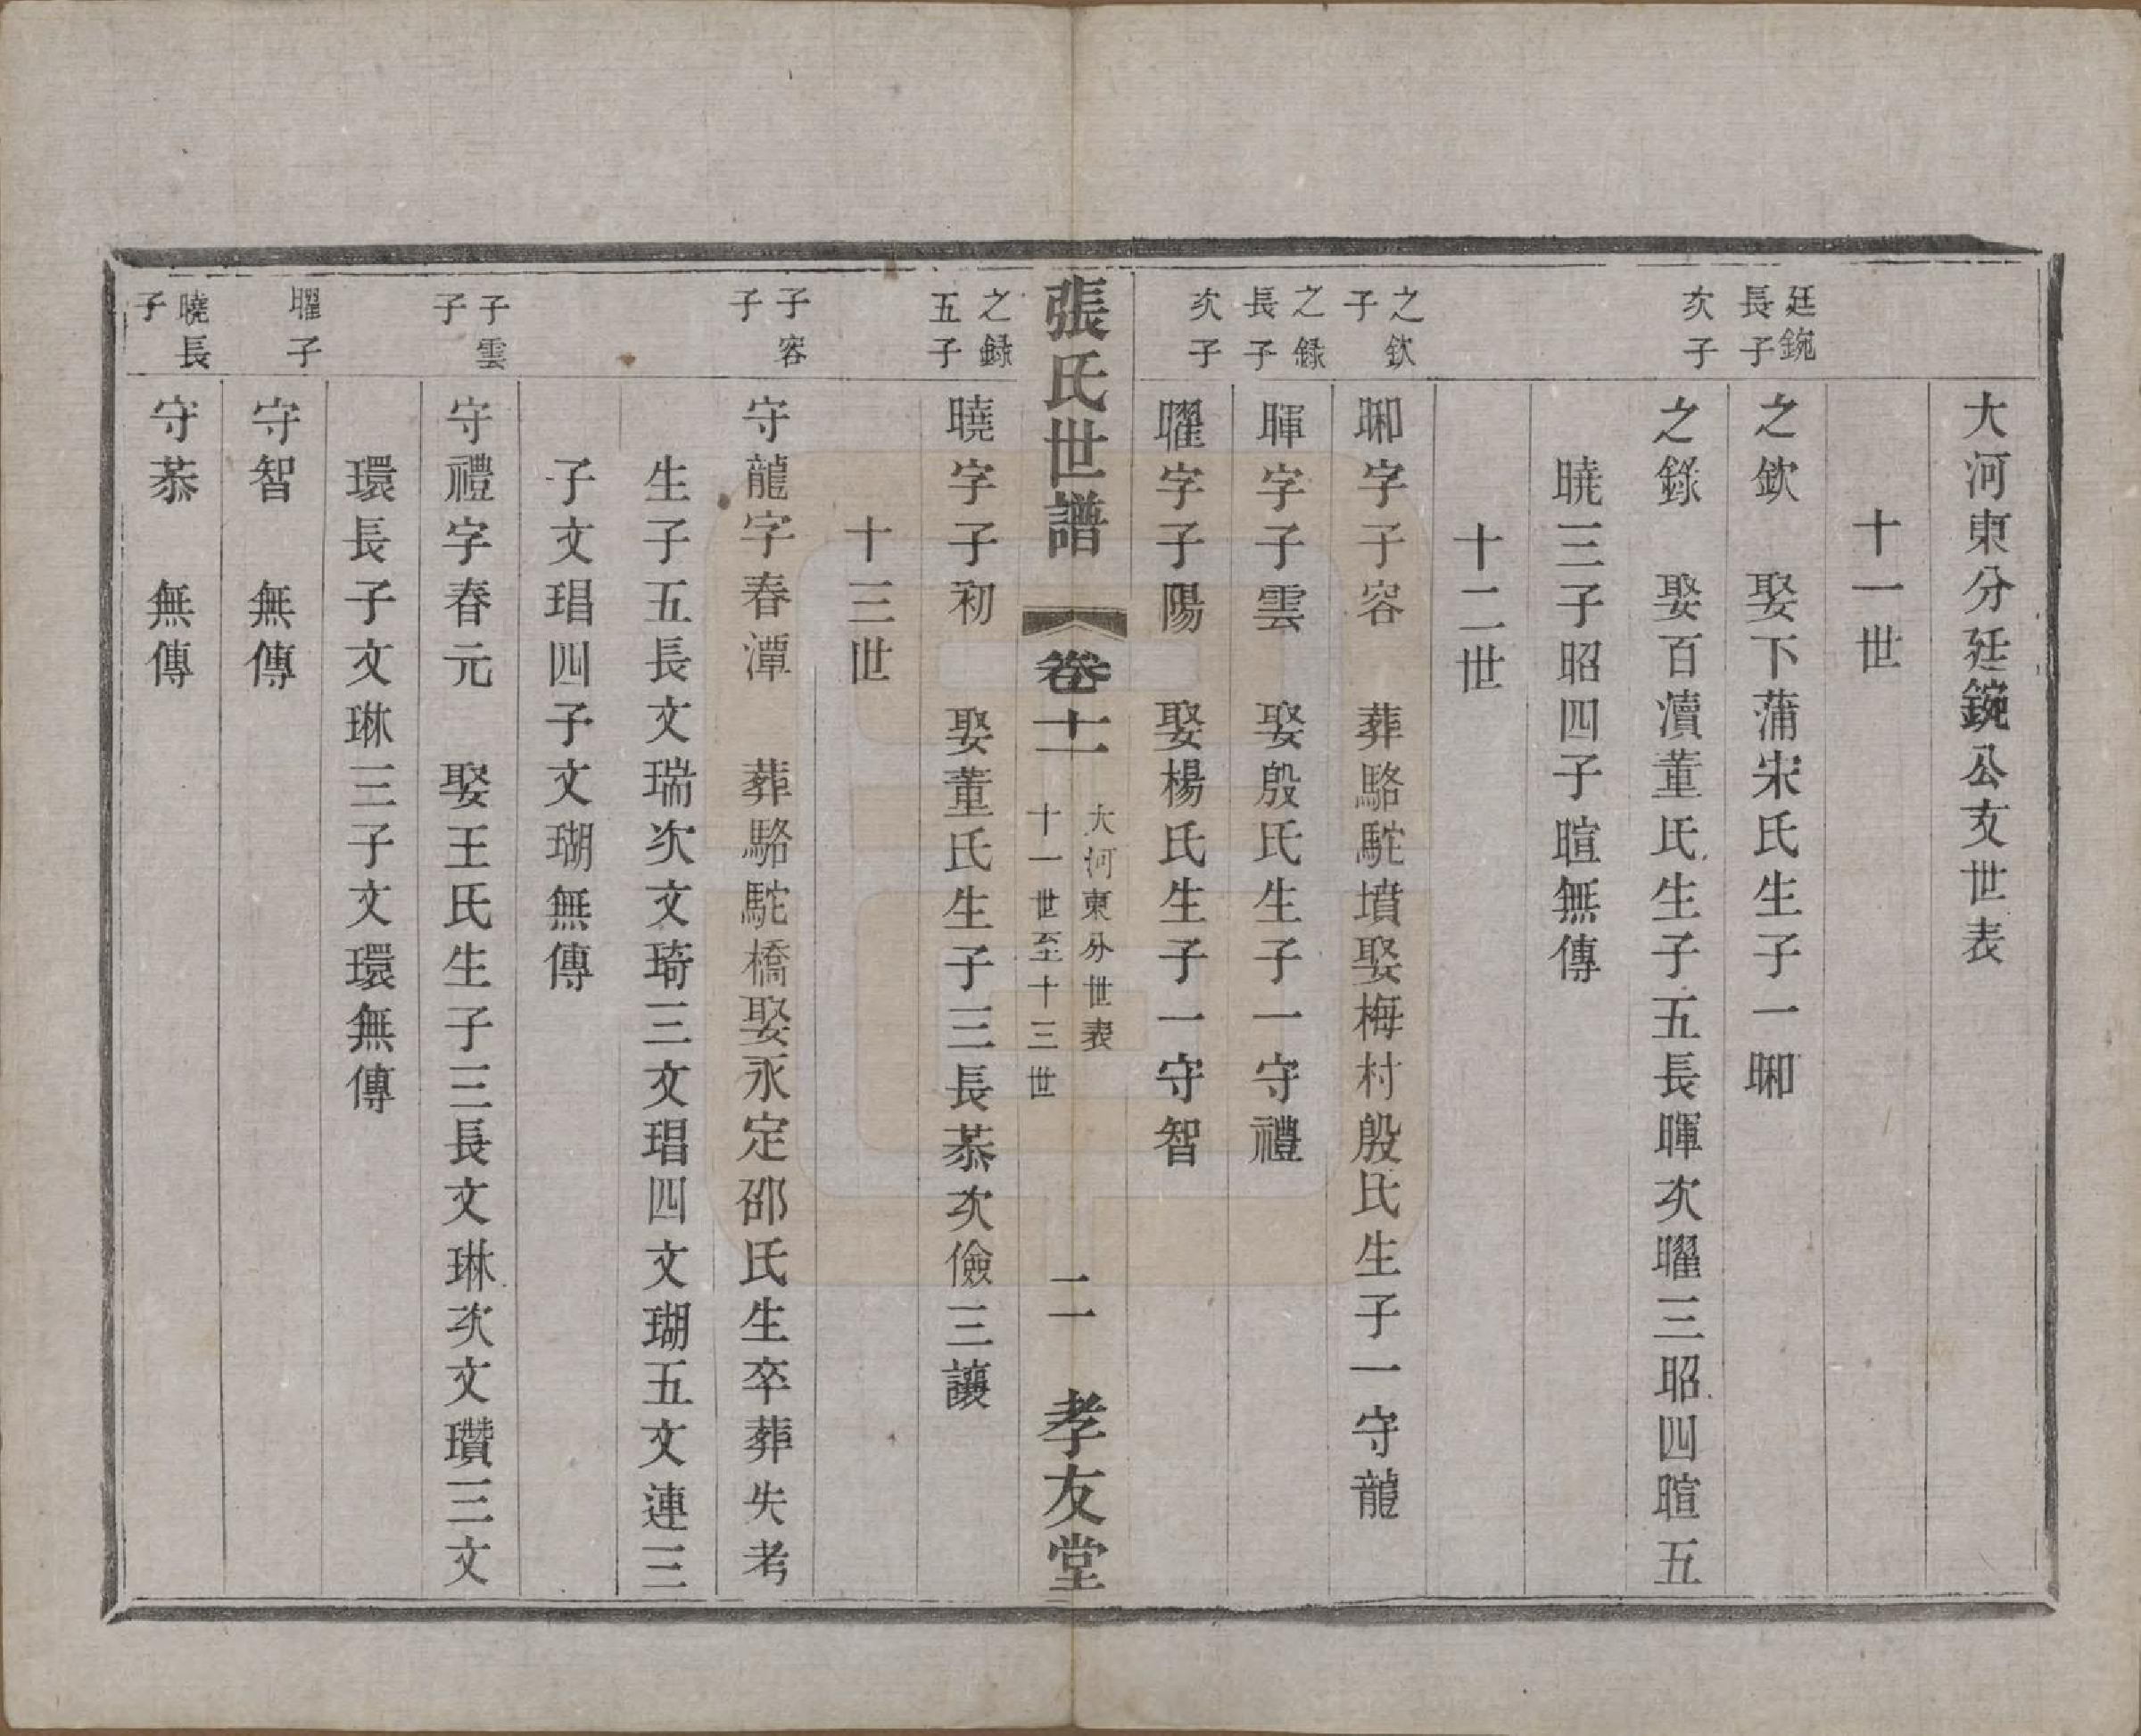 大河東分廷鋺公支世表
十一世
廷鋺長子
之欽　娶下蒲宋氏生子一㖿
次子
之錄　娶百瀆董氏生子五長暉次曜三昭四暄五
曉三子昭四子暄無傳
十二世
之欽子
字子容　葬駱駝墳娶梅村殷氏生子一守龍
之錄長子
暉字子雲　娶殷氏生子一守禮
次子
曜字子陽　娶楊氏生子一守智
張氏世譜　卷十一　大河東分世表　十一世至十三世　二一　孝友堂
之錄五子
曉字子初　娶董氏生子三長恭次儉三讓
十三世
子容子
守龍字春潭　葬駱駝橋娶永定邵氏生卒葬失考
生子五長文瑞次文琦三文琩四文瑚五文連三
子文琩四子文瑚無傳
子雲子
守禮字春元　娶王氏生子三長文琳次文瓚三文
環長子文琳三子文環無傳
曜子
守智　無傳
曉長子
守恭　無傳